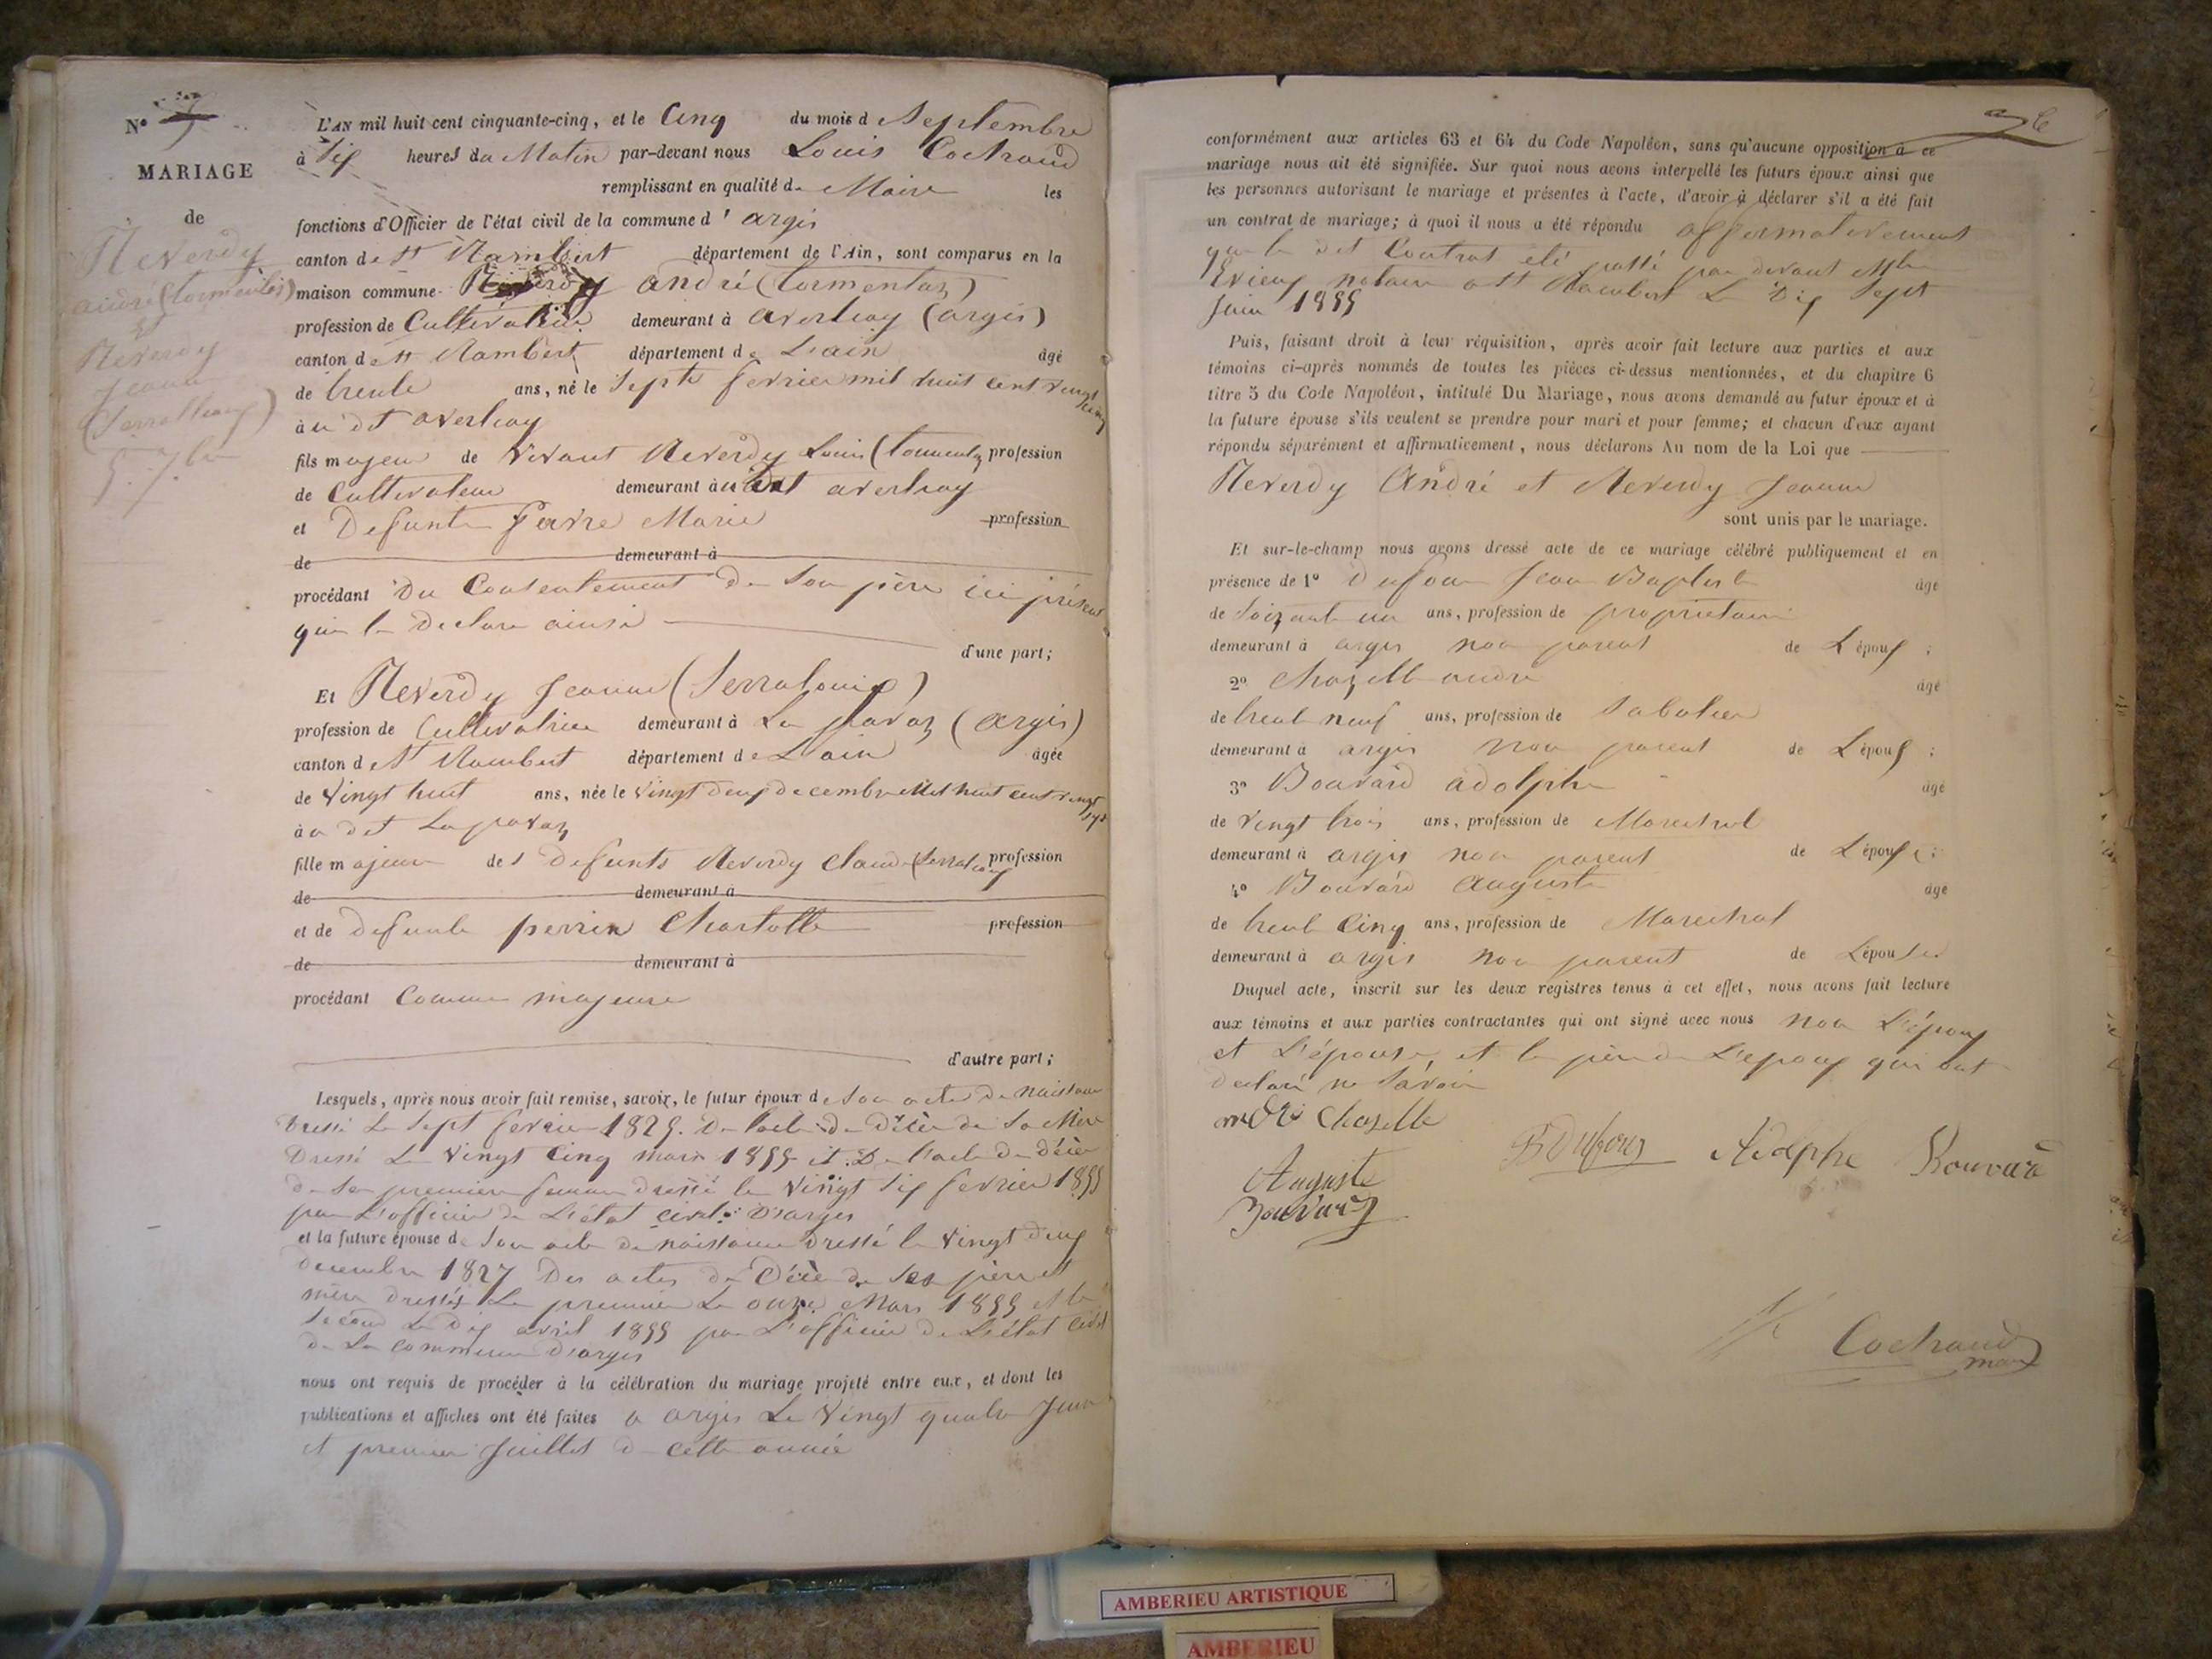 N° 7
MARIAGE
de
Reverdy
andré (tormentaz)
et
Reverdy
Jeanne
5. 7bre
L'AN mil huit cent cinquante-cinq, et le Cinq du mois d Septembre
à Six heures du Matin par-devant nous Louis Cochaud
remplissant en qualité de Maire les
fonctions d'Officier de l'état civil de la commune d'argis
canton de St Rambert département de l'Ain, sont comparus en la
maison commune Reverdy andré (tormentaz)
profession de Cultivateur demeurant à averliay (argis)
canton de St Rambert département de L'ain âgé
de trente ans, né le Sept fevrier mil huit cent vingt cinq
à u dt averliay
fils majeur de vivant Reverdy Louis (tormentaz profession
de Cultivateur demeurant à u dt averliay
et Defunte Marie profession
de demeurant à
procédant Du Consentement de Son père ici présent
qui le Declare ainsi
d'une part;
Et Reverdy Jeanne
profession de Cultivatrice demeurant à La pavaz (argis)
canton de St Rambert département de L'ain âgée
de Vingt huit ans, née le Vingt deux decembre Mil huit cent vingt sept
à u dt La pavaz
fille majeure des Defunts Reverdy Claude profession
de demeurant à
et de defunte perrin Charlotte profession
de demeurant à
procédant Comme majeure
d'autre part;
Lesquels, après nous avoir fait remise, savoir, le futur époux de Son acte de naissance
Dressé Le Sept fevrier 1825. De l'acte de Décès de Sa Mère
Dressé Le Vingt Cinq mars 1855 et De l'acte de Décès
de Sa premiere femme dressé le Vingt Six fevrier 1855
par L'officier de L'état civil D'argis
et la future épouse de Son acte de naissance dressé le Vingt deux
decembre 1827 Des actes de Décès de Ses père et
mère dressés Le premier Le onze Mars 1855 et le
Second Le Dix avril 1855 par L'officier de L'état Civil
de La Commune D'argis
nous ont requis de procéder à la célébration du mariage projeté entre eux, et dont les
publications et affiches ont été faites a argis Le Vingt quatre Juin
et premier Juillet de cette année
conformément aux articles 63 et 64 du Code Napoléon, sans qu'aucune opposition à ce
mariage nous ait été signifiée. Sur quoi nous avons interpellé les futurs époux ainsi que
les personnes autorisant le mariage et présentes à l'acte, d'avoir à déclarer s'il a été fait
un contrat de mariage; à quoi il nous a été répondu affirmativement
que le dit Contrat été passé par devant Me
notaire a St Rambert Le Dix Sept
Juin 1855
Puis, faisant droit à leur réquisition, après avoir fait lecture aux parties et aux
témoins ci-après nommés de toutes les pièces ci-dessus mentionnées, et du chapitre 6
titre 5 du Code Napoléon, intitulé Du Mariage, nous avons demandé au futur époux et à
la future épouse s'ils veulent se prendre pour mari et pour femme; et chacun d'eux ayant
répondu séparément et affirmativement, nous déclarons Au nom de la Loi que
Reverdy André et Reverdy Jeanne
sont unis par le mariage.
Et sur-le-champ nous avons dressé acte de ce mariage célébré publiquement et en
présence de 1° Dufour Jean Baptiste âgé
de Soixante un ans, profession de proprietaire
demeurant à argis non parent de L'époux ;
2° Chazelle andré âgé
de trente neuf ans, profession de Sabotier
demeurant à argis non parent de L'époux ;
3° Bouvard adolphe âgé
de Vingt trois ans, profession de Marechal
demeurant à argis non parent de L'épouse ;
4° Bouvard Auguste âgé
de trente Cinq ans, profession de Marechal
demeurant à argis non parent de L'épouse
Duquel acte, inscrit sur les deux registres tenus à cet effet, nous avons fait lecture
aux témoins et aux parties contractantes qui ont signé avec nous non L'époux
et L'épouse, et le père de L'epoux qui ont
declaré ne Savoir
Chazelle
BDufour
Adolphe Bouvard
Auguste
Bouvard
Cochaud
maire
AMBERIEU ARTISTIQUE
AMBERIEU